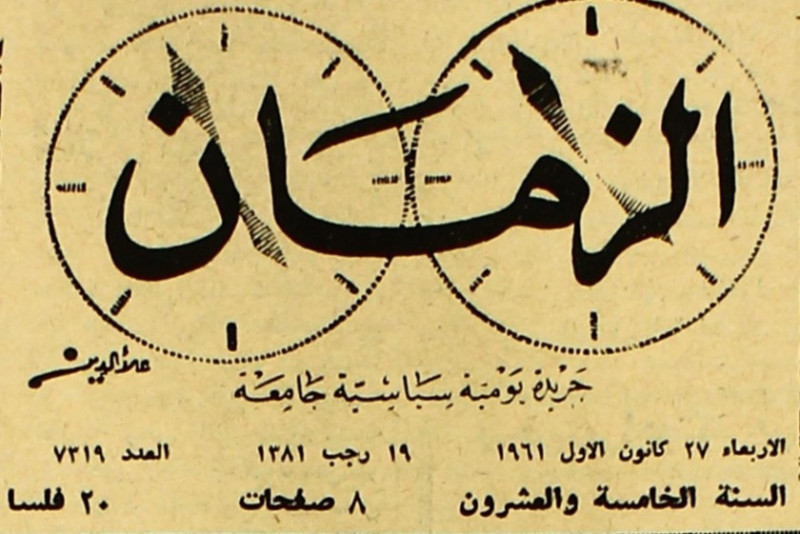 الزمان
علاء الدين
جَريْدة يَوميَّة سِيَاسْيّة جَامِعَة
الاربعاء ٢٧ كانون الاول ١٩٦١ ١٩ رجب ١٣٨١ العدد ٧٣١٩
السنة الخامسة والعشرون ٨ صفحات ٢٠ فلسا